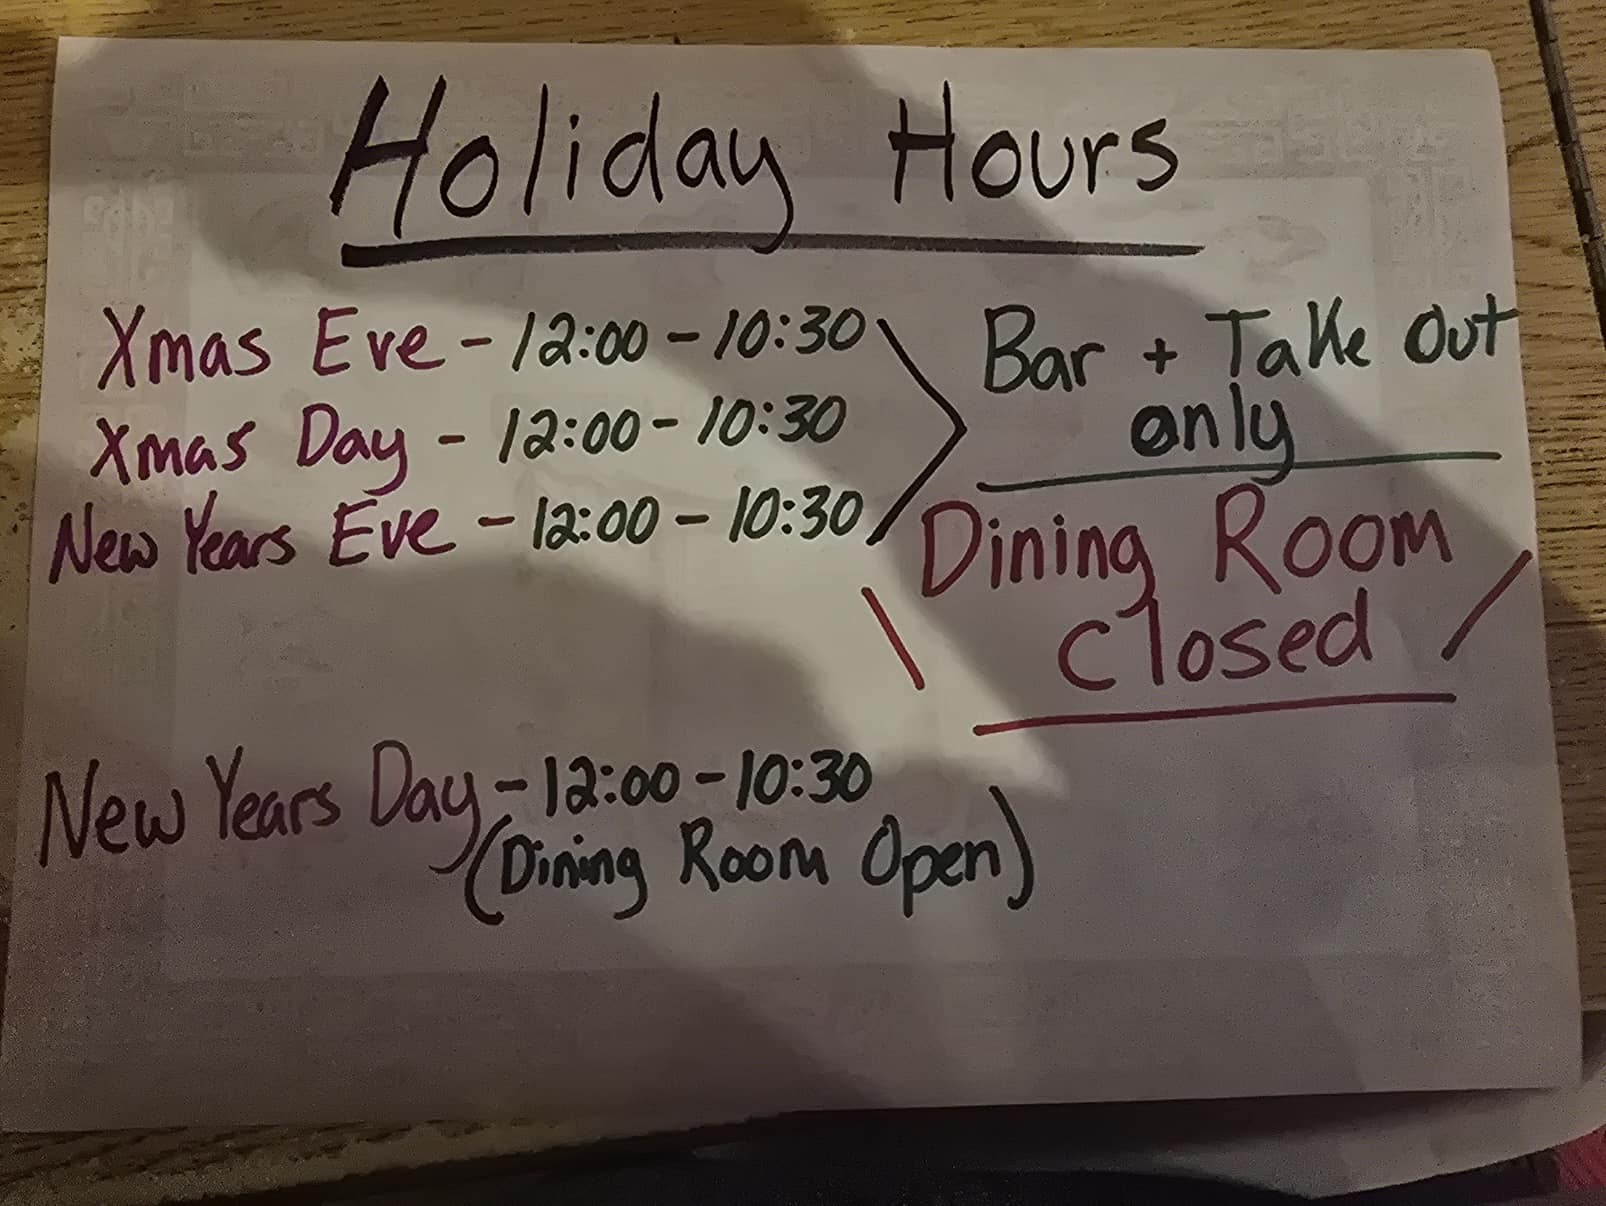 Holiday Hours
Xmas Eve - 12:00 - 10:30
Xmas Day - 12:00 - 10:30
New Years Eve - 12:00 - 10:30
Bar + Take Out
only
Dining Room
Closed
New Years Day - 12:00 - 10:30
(Dining Room Open)